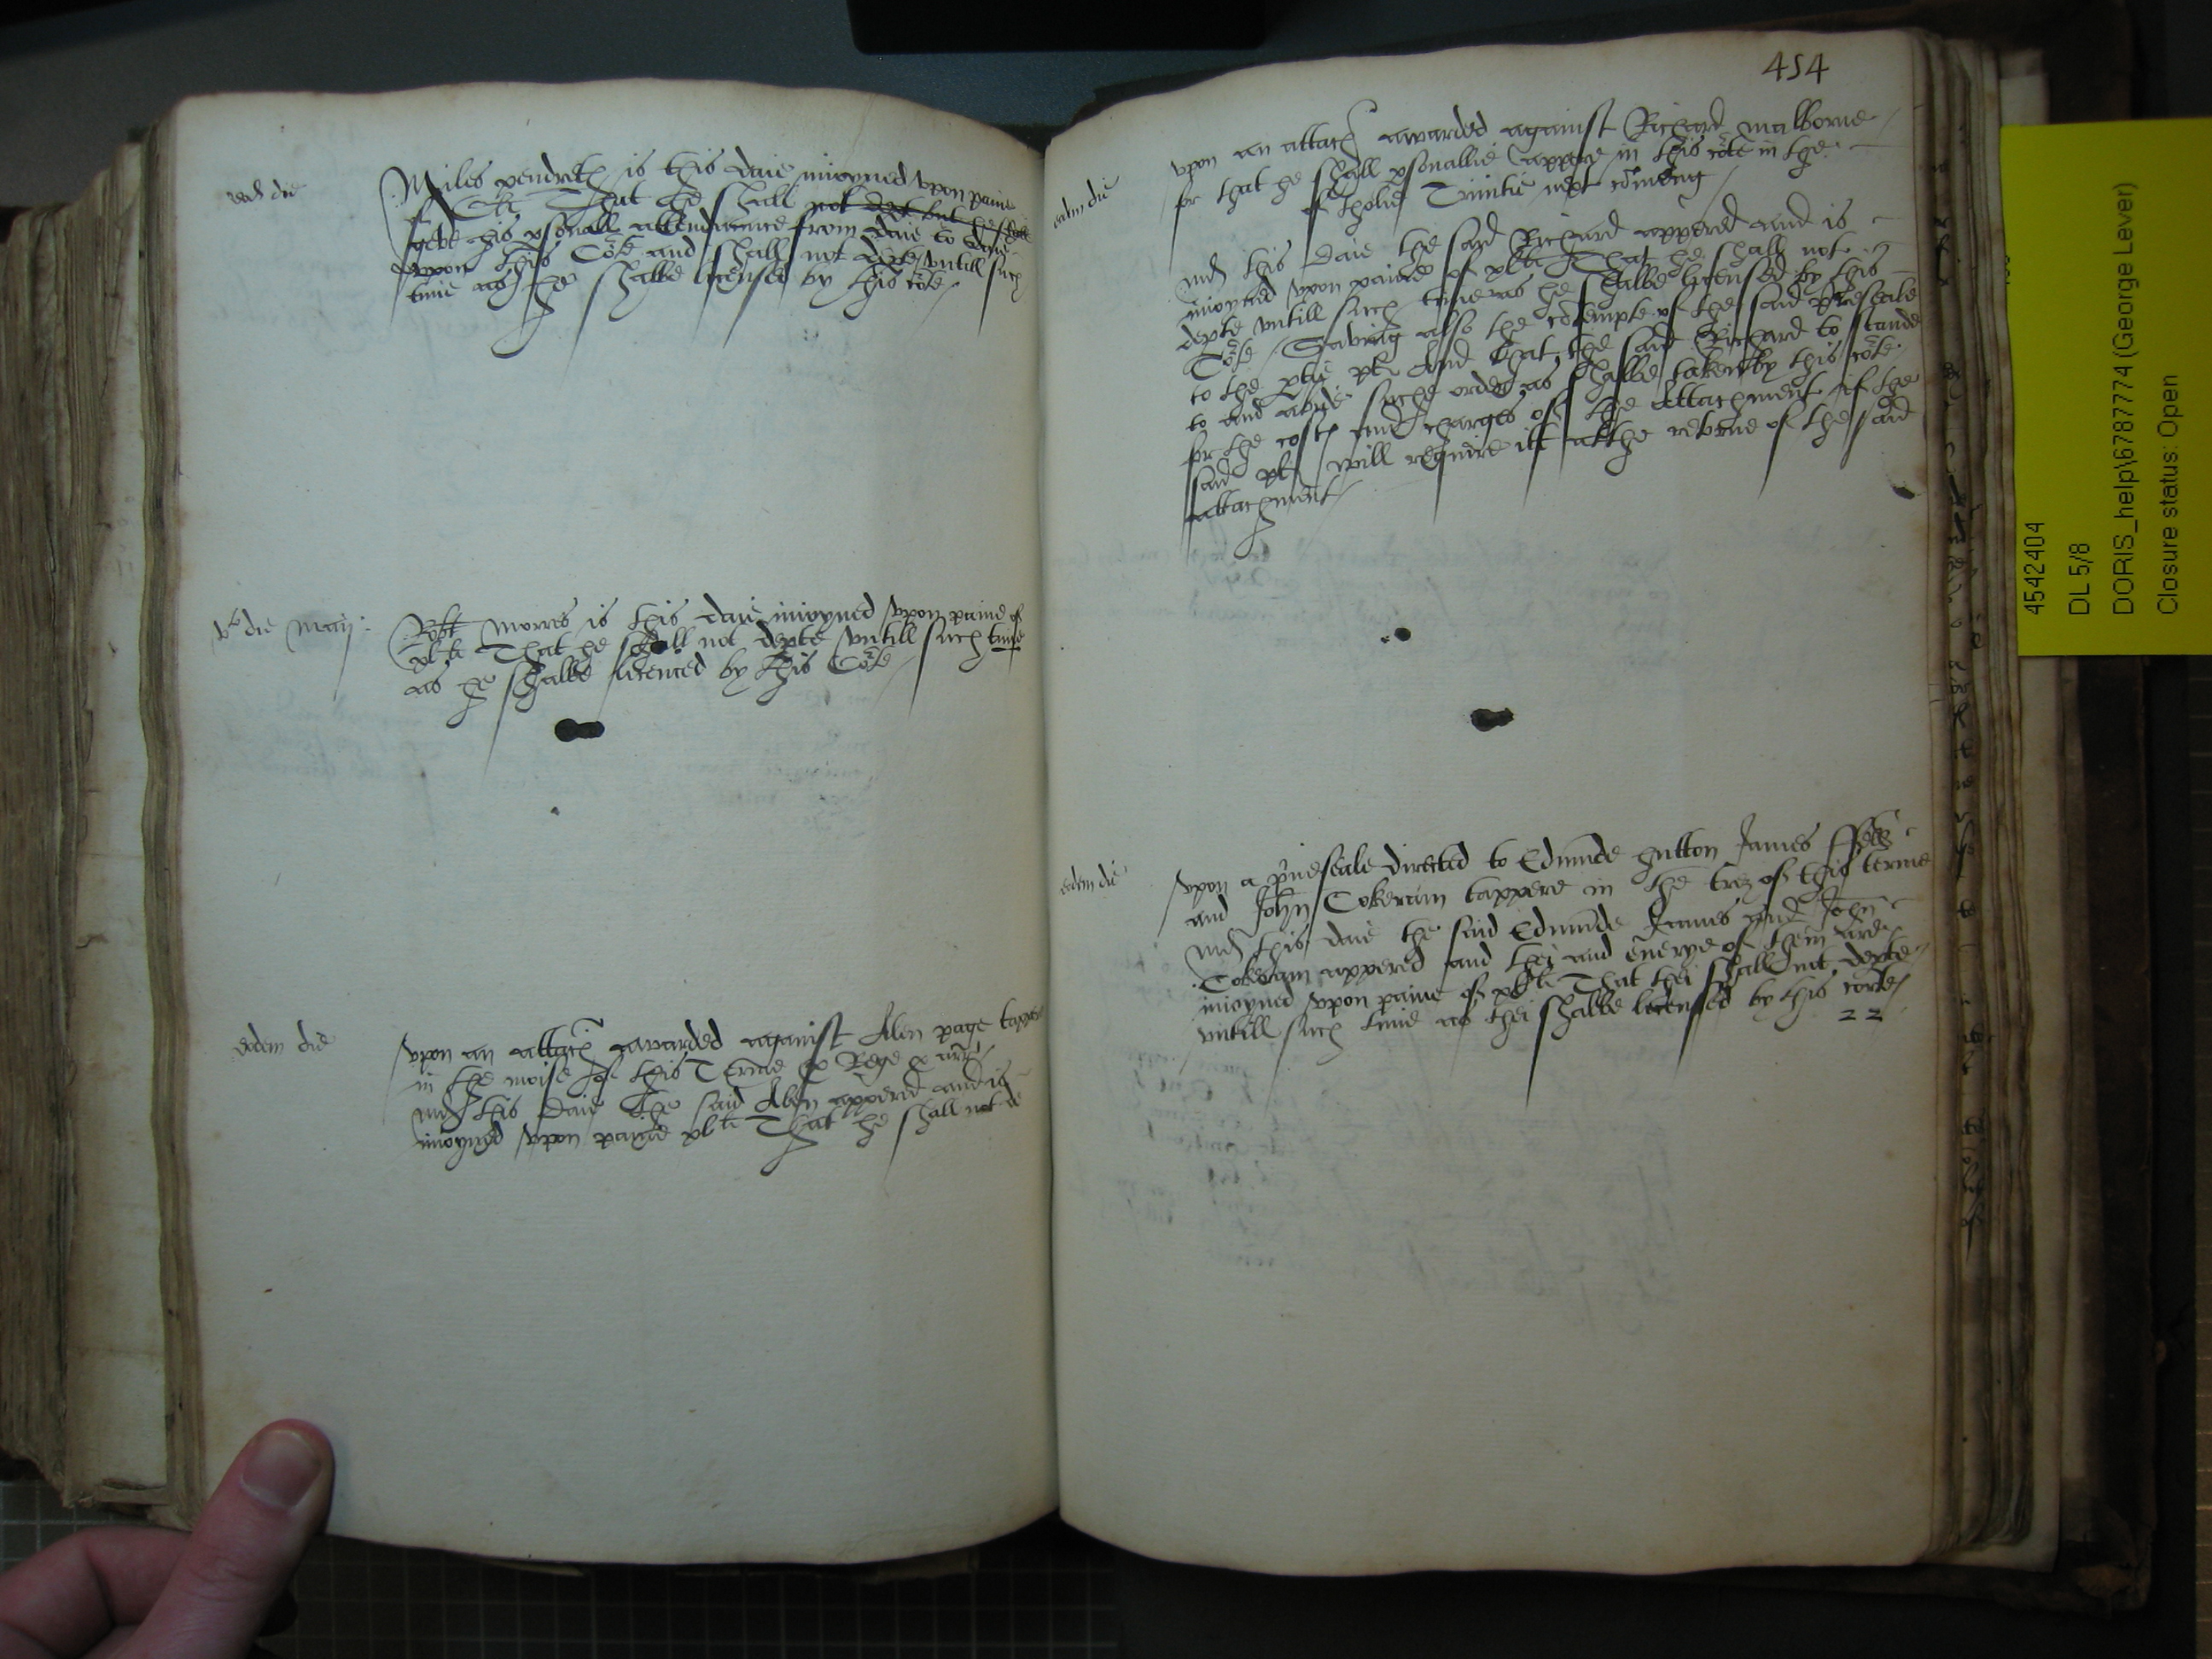 eod die
Miles pendreth is this daie inioyned vpon paine
of That he shall not dept but he shall
geve his psonall attendaunce from daie to daie
vppon this Cote and shall not depte vntill such
time as he shalbe licensed by this cote
vto die maij
Robt morres is this daie inioyned vpon paine of
xl li That he shall not depte vntill such time
as he shalbe licenced by this Cote
eodem die
vpon an attach awarded against Alen page tappere
in the moise of this Terme Rege
md this daie the said Alen appered and is
inioyned vpon paine xl li That he shall not de
454
eodm die
vpon an attach awarded against Richard malborne
for that he shall psonallie appere in this cote in the
of tholie Trinitie next coming
md this daie the said Richard appered and is
inioyned vpon paine of xl li That he shall not
depte vntill such time as he shalbe licensed by this
Cote Saving also the contempte of the said privieseale
to the ptie plt And that the said Richard to stande
to and abide suche order as shalbe taken by this cote
for the costs and charges of the attachment if the
said plt will require itt att the retorne of the said
attachment
eodem die
vpon a privieseale directed to Edmunde hutton James
and John Cokeram tappere in the trez of this terme
md this daie the said Edmunde James and John
Cokeram appered and thei and euerye of them are
inioyned vpon paine of xl li That thei shall not depte
vntill such time as thei shalbe licensed by this corte
22
4542404
DL 5/8
DORIS_help\6787774 (George Lever)
Closure status: Open